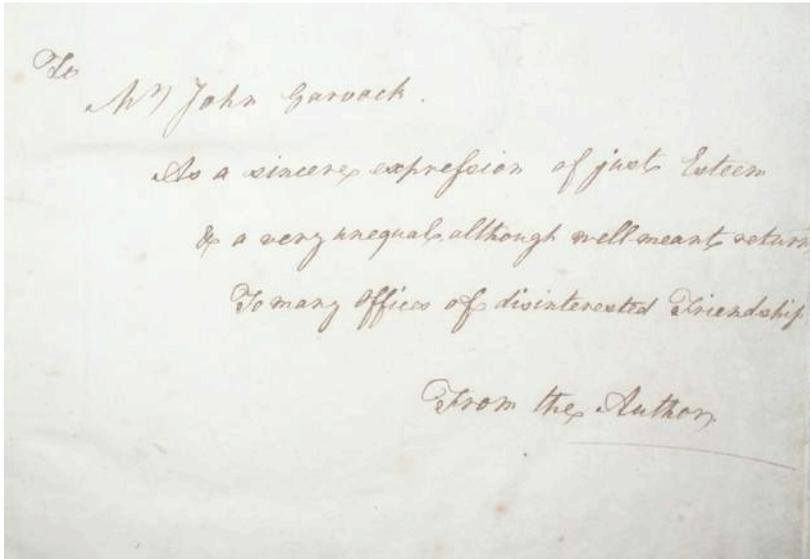 To
Mr John Garvock.
As a sincere expreſsion of just Esteem
& a very unequal, although well meant return
To many Offices of disinterested Friendship
From the Author